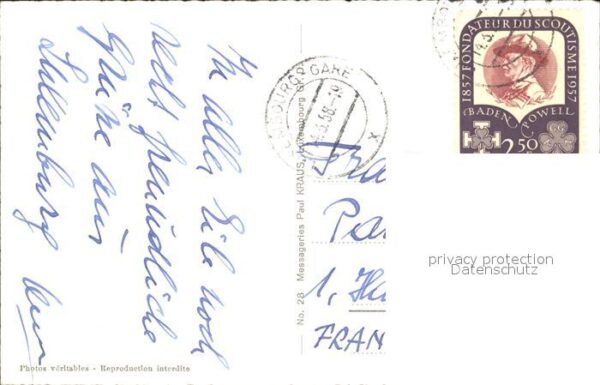 In aller Eile noch
recht freundliche
Grüße aus
Luxemburg
Photos véritables - Reproduction interdite
No. 28 Messageries Paul KRAUS, Luxembourg G
LUXEMBOURG GARE
58-19
1857 FONDATEUR DU SCOUTISME 1957
BADEN POWELL
2.50
1,
FRAN
privacy protection
Datenschutz